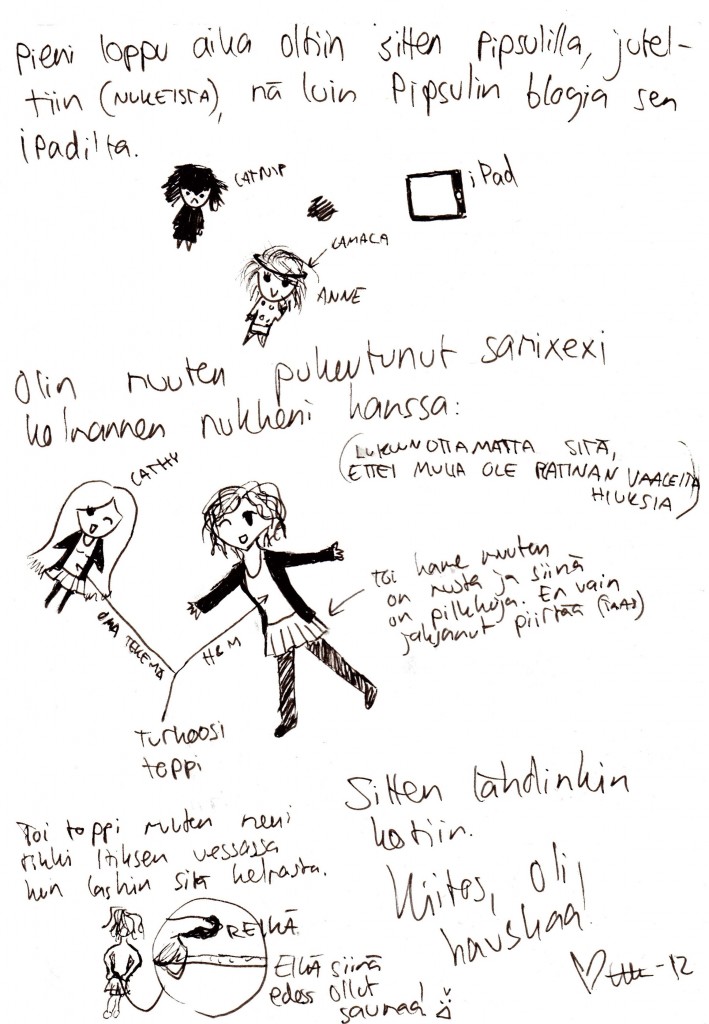 Pieni loppu aika oltiin sitten Pipsulilla, jutel-
tiin (NUKEISTA), nä luin Pipsulin blogia sen
iPadilta.
CATNIP
iPad
LAMACA
ANNE
Olin muuten pukeutunut samixexi
kolmannen nukkeni kanssa:
(LUKUUNOTTAMATTA SITÄ,
ETTEI MULLA OLE PLATINAN VAALEITA
HIUKSIA)
CATHY
Toi hame muuten
on musta ja siinä
on pilkkuja. En vain
jaksanut piirtää
OMA TEKEMÄ
H&M
Turkoosi
toppi
Toi toppi muuten meni
rikki Itiksen vessassa
kun laskin sitä helmasta.
REIKÄ
Eikä siinä
edes ollut
saumaa!
Sitten lähdinkin
kotiin.
Kiitos, oli
hauskaa!
-12